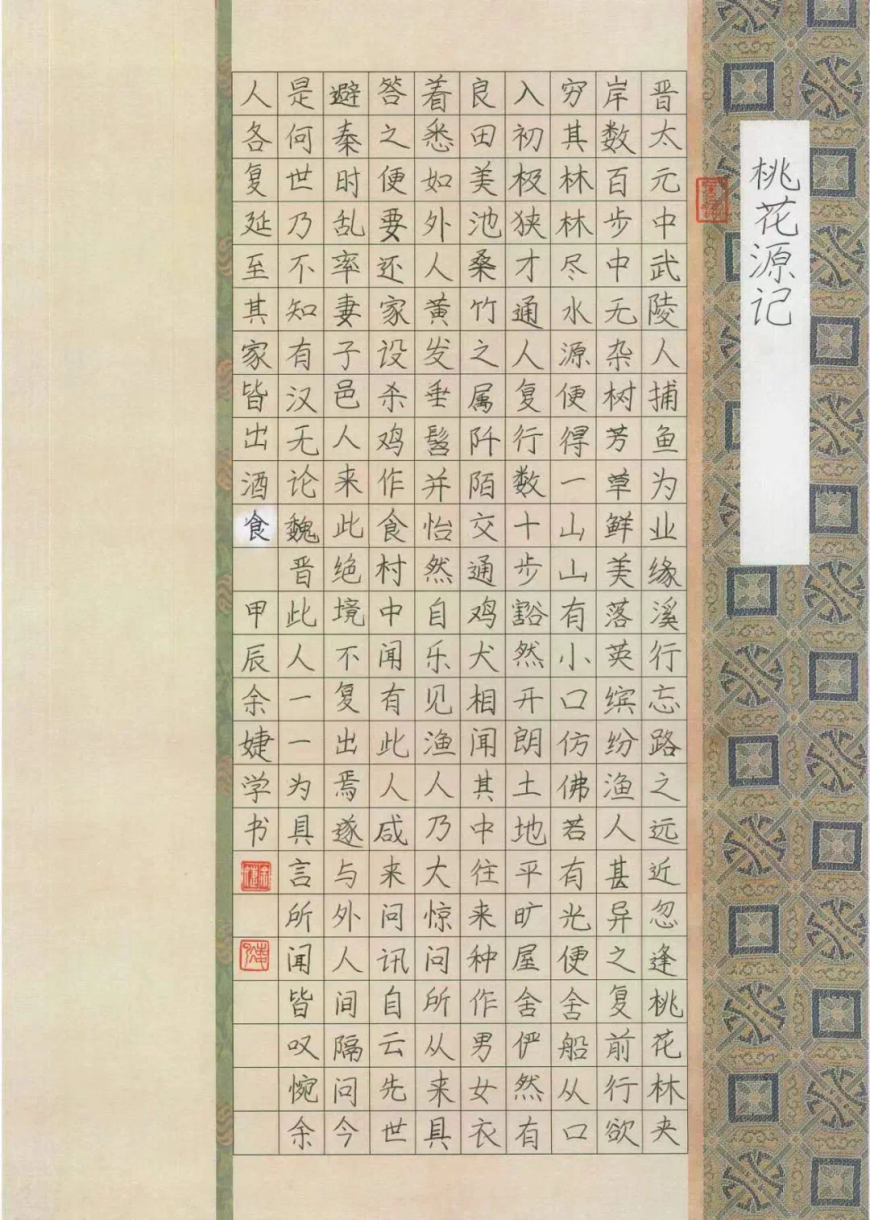 桃花源记
晋太元中武陵人捕鱼为业缘溪行忘路之远近忽逢桃花林夹
岸数百步中无杂树芳草鲜美落英缤纷渔人甚异之复前行欲
穷其林林尽水源便得一山山有小口仿佛若有光便舍船从口
入初极狭才通人复行数十步豁然开朗土地平旷屋舍俨然有
良田美池桑竹之属阡陌交通鸡犬相闻其中往来种作男女衣
着悉如外人黄发垂髫并怡然自乐见渔人乃大惊问所从来具
答之便要还家设杀鸡作食村中闻有此人咸来问讯自云先世
避秦时乱率妻子邑人来此绝境不复出焉遂与外人间隔问今
是何世乃不知有汉无论魏晋此人一一为具言所闻皆叹惋余
人各复延至其家皆出酒食 甲辰余婕学书